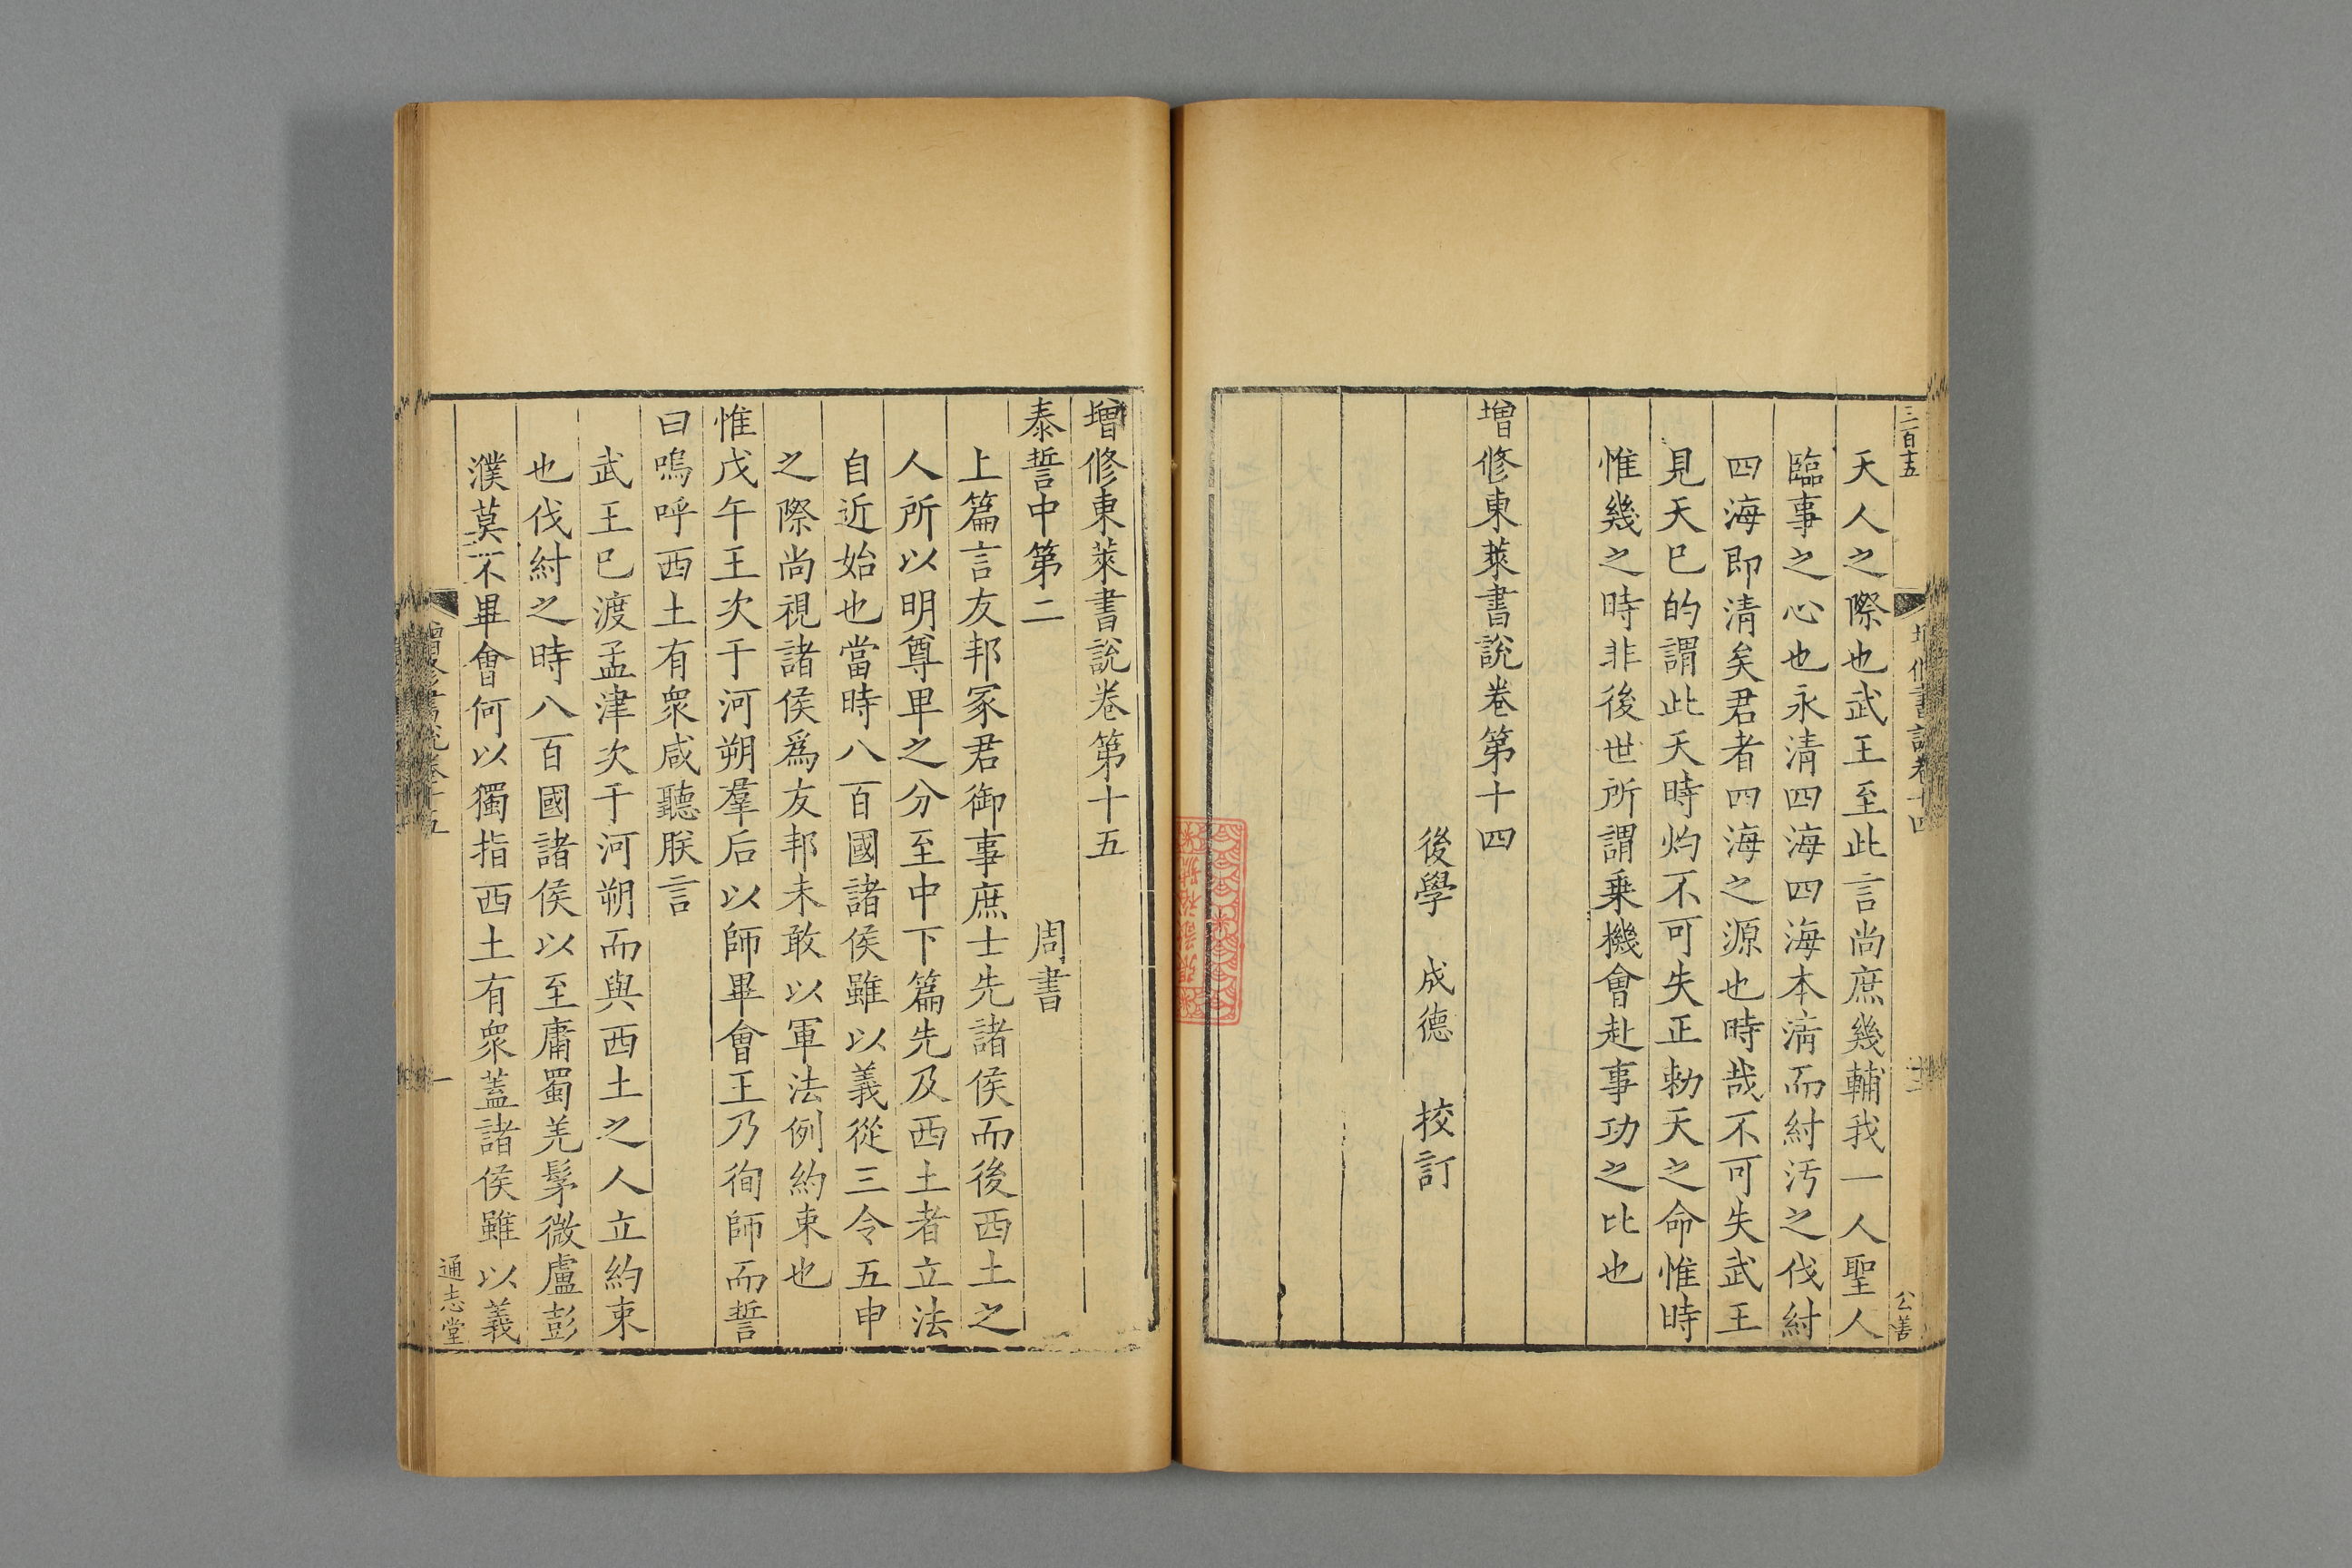 三百十五
天人之際也武王至此言尚庶幾輔我一人聖人
臨事之心也永清四海四海本清而紂汚之伐紂
四海即清矣君者四海之源也時哉不可失武王
見天已的謂此天時灼不可失正勑天之命惟時
惟幾之時非後世所謂乗機會赴事功之比也
増修東萊書説卷第十四
後學 成德 挍訂
公善
増修東萊書説卷第十五
泰誓中第二 周書
上篇言友邦冢君御事庶士先諸侯而後西土之
人所以明尊卑之分至中下篇先及西土者立法
自近始也當時八百國諸侯雖以義從三令五申
之際尚視諸侯爲友邦未敢以軍法例約束也
惟戊午王次于河朔羣后以師畢會王乃徇師而誓
曰嗚呼西土有衆咸聽朕言
武王已渡孟津次于河朔而與西土之人立約束
也伐紂之時八百國諸侯以至庸蜀羌髳微盧彭
濮莫不畢會何以獨指西土有衆蓋諸侯雖以義
一
通志堂